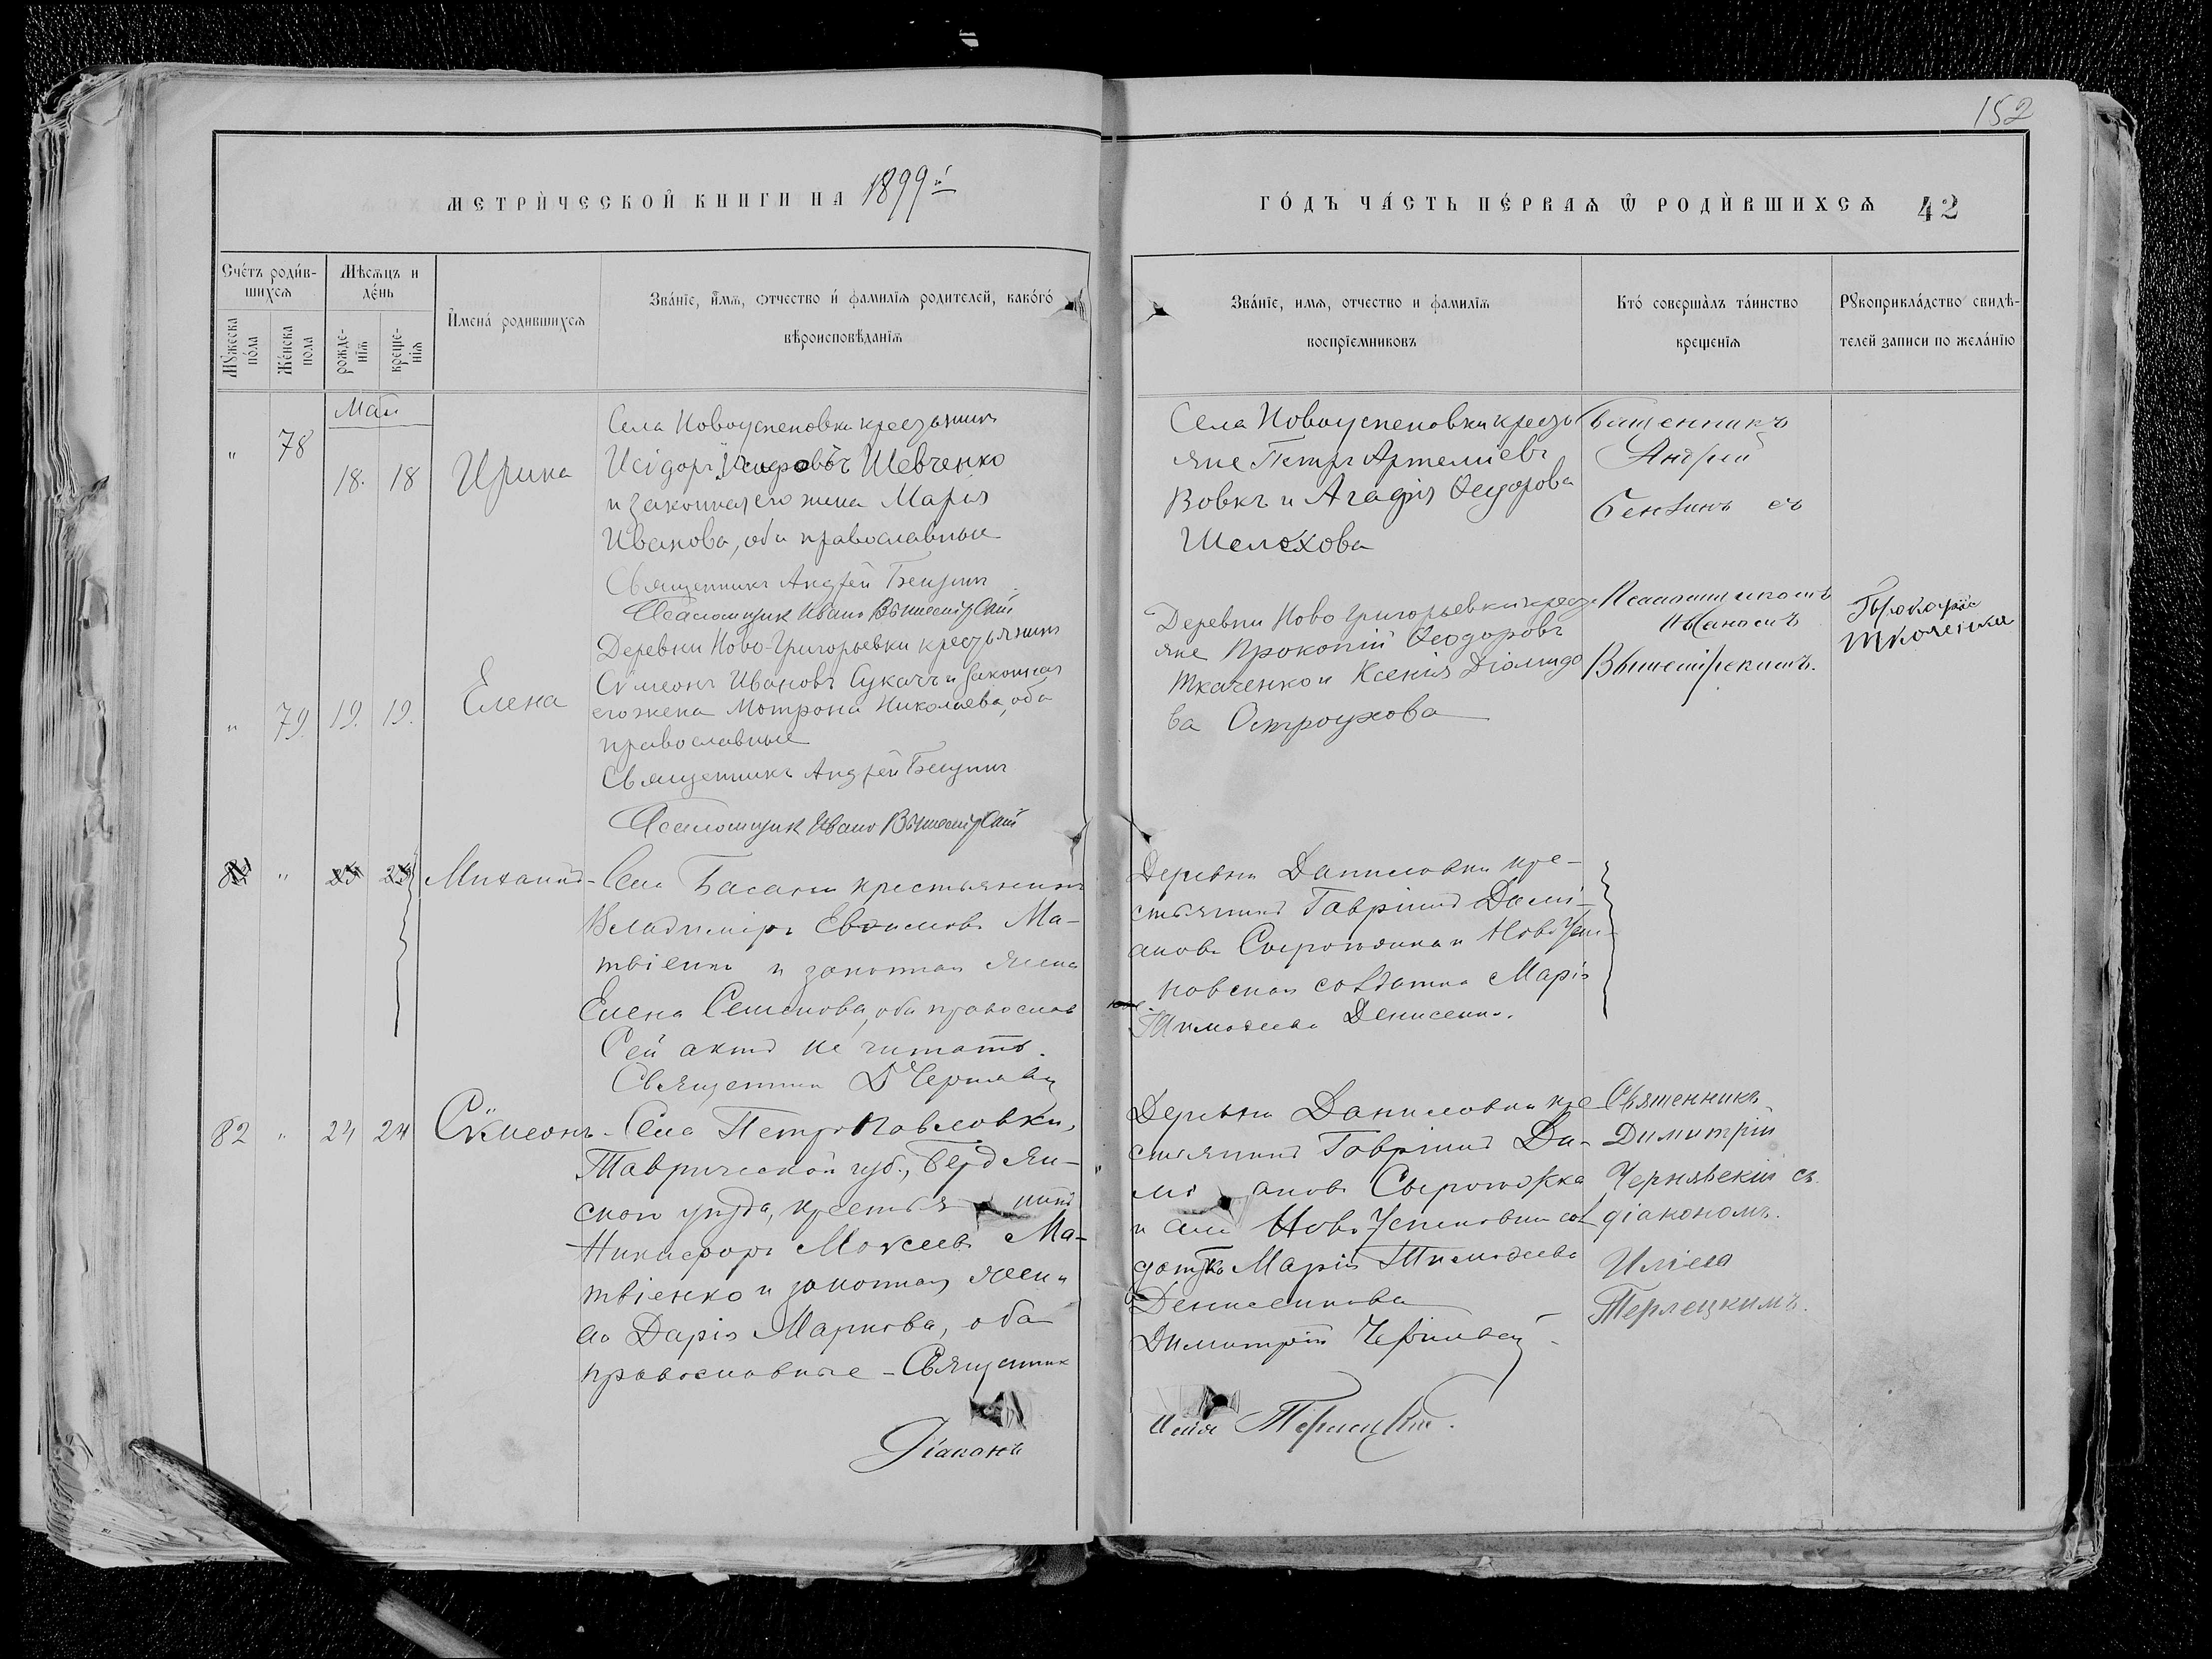 152
МЕТРИЧЕСКОЙ КНИГИ НА 1899й
ГОДЪ ЧАСТЬ ПЕРВАЯ Ѿ РОДИВШИХСЯ 42
Счетъ родив-
шихся
Мужеска
пола
Женска
пола
Мѣсяцъ и
день
рожде-
нія
креще-
нія
Имена родившихся
Званіе, имя, отчество и фамилія родителей, какого
вѣроисповѣданія
Званіе, имя, отчество и фамилія
воспріемниковъ
Кто совершалъ таинство
крещенія
Рукоприкладство свидѣ-
телей записи по желанію
Май
" 78 18. 18 Ирина
Села Новоуспеновки крестьянинъ
Исідоръ Шевченко
и законная его жена Марія
Иванова, оба православные
Священникъ Андрей
Псаломщик Иванъ
Села Новоуспеновки кресть
яне Петръ Артеміевъ
Вовкъ и Агафія Ѳедорова
Шелехова
Священникъ
Андрей
съ
Псаломщикомъ
Иваномъ
" 79. 19. 19. Елена
Деревни Ново-Григорьевки крестьянинъ
Сѵмеонъ Ивановъ Сукачъ и законная
его жена Мотрона Николаева, оба
православные
Священникъ Андрей
Псаломщик Иванъ
Деревни Ново Григорьевки кресть
яне Прокопій Ѳеодоровъ
Ткаченко и Ксенія Діомидо
ва Остроухова
Прокофій
"
Михаилъ - Села Басани крестьянинъ
Владиміръ Евѳимовъ Ма-
твіенко и законная жена
Елена Семенова, оба православ
Сей актъ не читать.
Священник Д Чернявскій
Деревни Даниловки кре-
стьянинъ Гавріилъ Дамі-
ановъ Сыротюка и Ново Успе-
новская солдатка Марія
Тимоѳеева Денисенко.
82 " 24 24 Сѵмеонъ - Села ПетроПавловки,
Таврической губ., Бердян-
скаго уѣзда, крестьянинъ
Никифоръ Мокеевъ Ма-
твіенко и законная жена
его Дарія Маркова, оба
православные - Священник
Діаконъ
Деревни Даниловки кре
стьянинъ Гавріилъ Да-
мі ановъ Сыротюка
и села Ново Успеновки сол
датка Марія Тимоѳеева
Денисенкова
Димитрій Чернявскій
Илія Терлецкій.
Священникъ
Димитрій
Чернявскій съ
діакономъ
Иліею
Терлецкимъ.